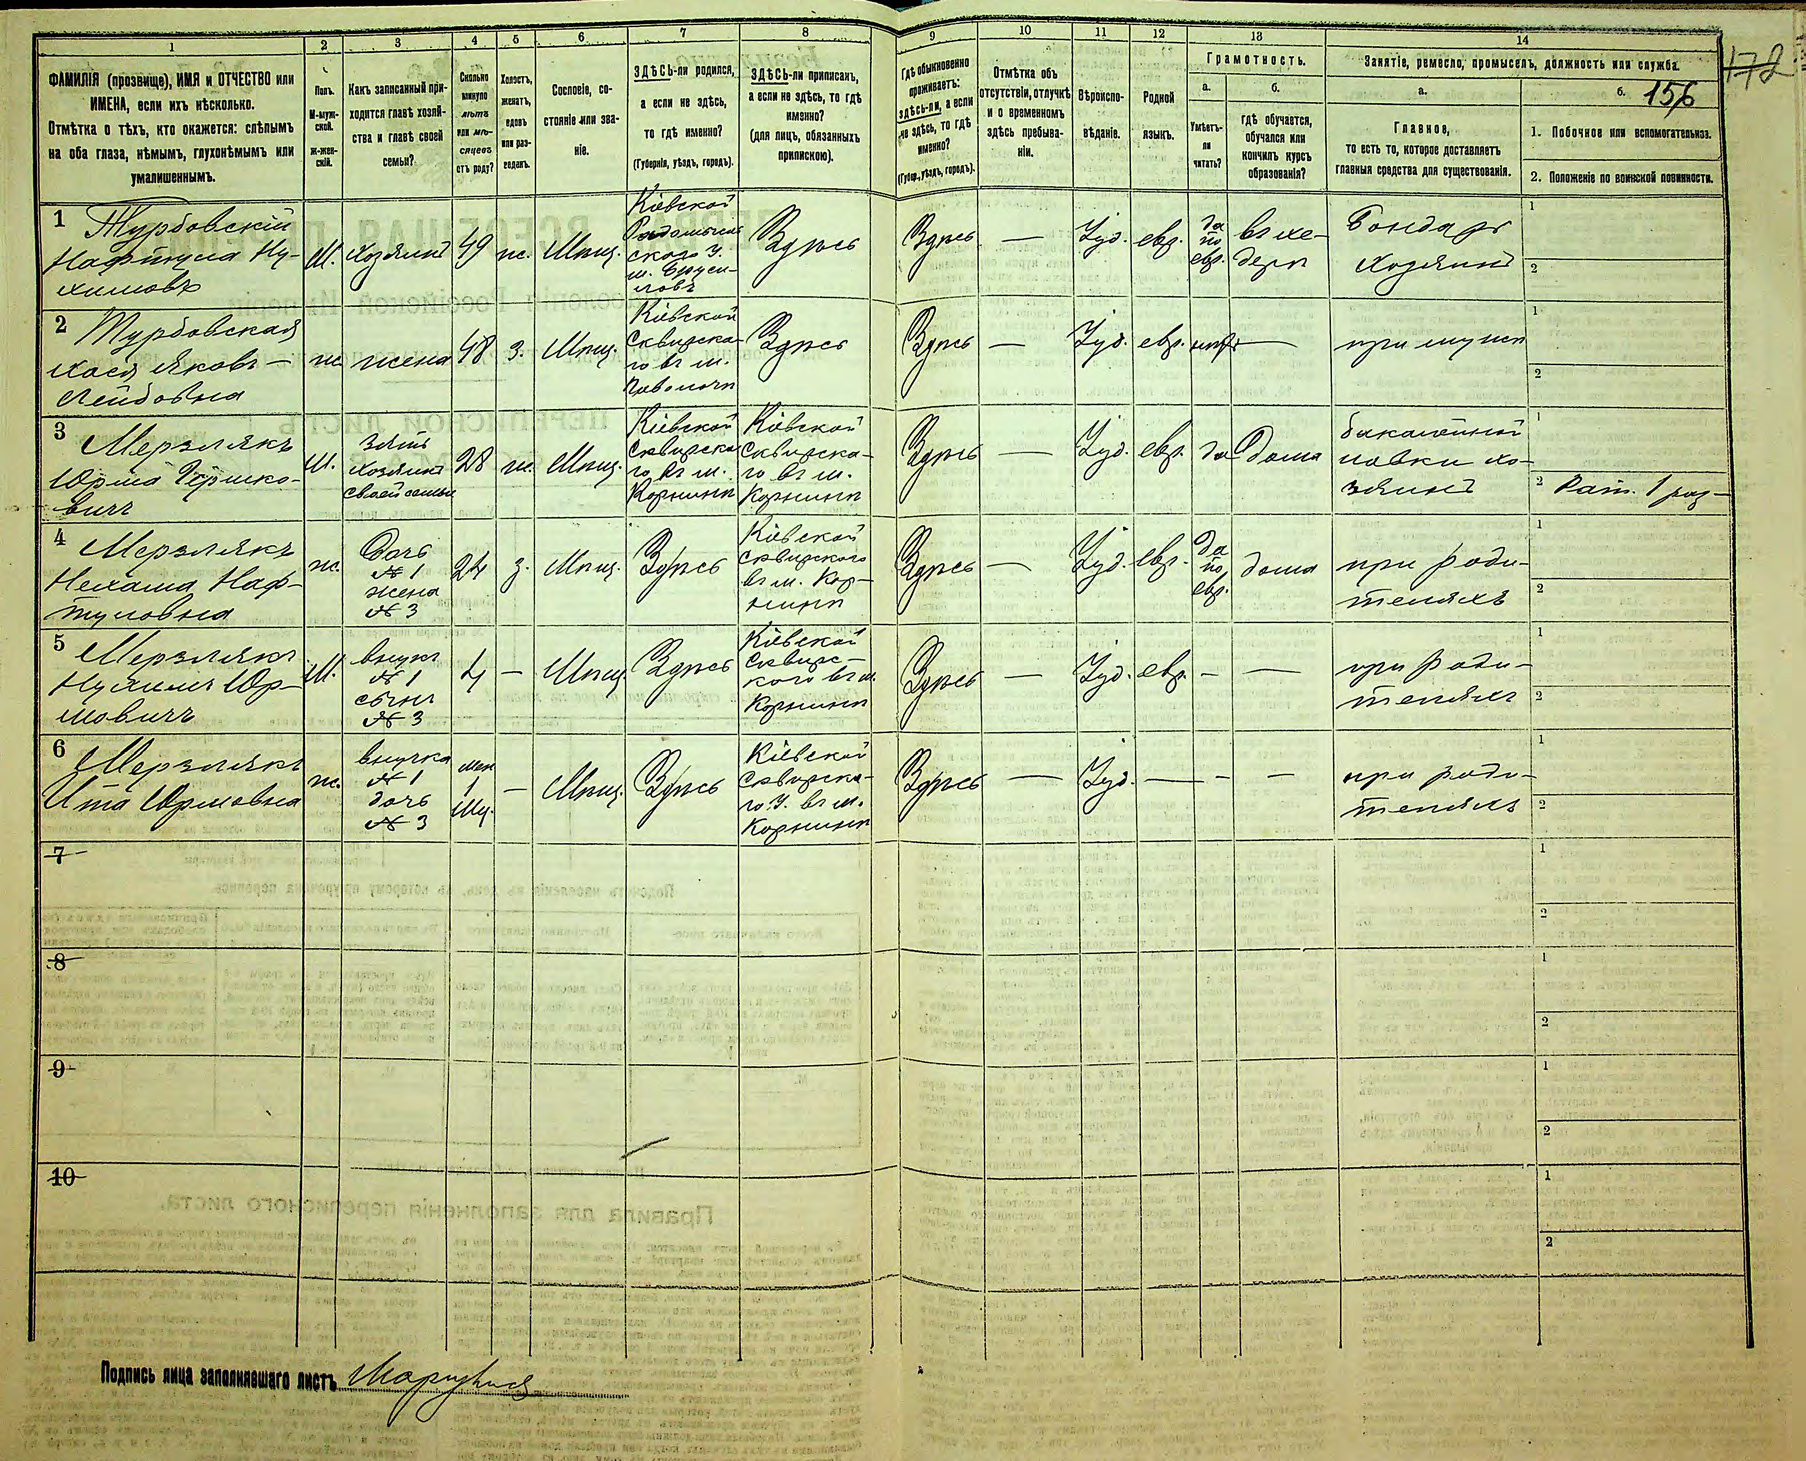 1 2 3 4 5 6 7 8 9 10 11 12 13 14
ФАМИЛІЯ (прозвище), ИМЯ и ОТЧЕСТВО или
ИМЕНА, если ихъ нѣсколько.
Отмѣтка о тѣхъ, кто окажется: слѣпымъ
на оба глаза, нѣмымъ, глухонѣмымъ или
умалишеннымъ.
Полъ.
М-муж-
ской.
Ж-жен-
скій.
Какъ записанный при-
ходится главѣ хозяй-
ства и главѣ своей
семьи?
Сколько
минуло
лѣтъ
или мѣ-
сяцевъ
отъ роду?
Холостъ,
женатъ,
вдовъ
или раз-
веденъ.
Сословіе, со-
стояніе или зва-
ніе.
ЗДѢСЬ-ли родился,
а если не здѣсь,
то гдѣ именно?
(Губернія, уѣздъ, городъ).
ЗДѢСЬ-ли приписанъ,
а если не здѣсь, то гдѣ
именно?
(для лицъ, обязанныхъ
припискою).
Гдѣ обыкновенно
проживаетъ:
здѣсь-ли, а если
не здѣсь, то гдѣ
именно?
(Губер., уѣздъ, городъ).
Отмѣтка объ
отсутствіи, отлучкѣ
и о временномъ
здѣсь пребыва-
ніи.
Вѣроиспо-
вѣданіе.
Родной
языкъ.
Грамотность.
а.
Умѣетъ-
ли
читать?
б.
гдѣ обучается,
обучался или
кончилъ курсъ
образованія?
Занятіе, ремесло, промыселъ, должность или служба.
а.
Главное,
то есть то, которое доставляетъ
главныя средства для существованія.
б.
1. Побочное или вспомогательное.
2. Положеніе по воинской повинности.
172
156
1 Турбовскій
Нафтула Ну-
химовъ
М.
Хозяинъ
49
ж.
Мѣщ.
Кіевской
Радомысль
скаго У.
м. Бруси-
ловъ
Здѣсь
Здѣсь
—
Іуд.
евр.
да
по
евр.
въ хе-
дерѣ
Бондарь
Хозяинъ
1
2
2 Турбовская
Хася Яковъ-
Лейбовна
ж.
жена
48
з.
Мѣщ.
Кіевской
Сквирска-
го въ м.
Паволочи
Здѣсь
Здѣсь
—
Іуд.
евр.
нѣтъ
—
при мужѣ
1
2
3 Мерзлякъ
Юрма Гершко-
вичъ
М.
зять
хозяина
своей семьи
28
ж.
Мѣщ.
Кіевской
Сквирска
го въ м.
Корнинѣ
Кіевской
Сквирска-
го въ м.
Корнинѣ
Здѣсь
—
Іуд.
евр.
да
дома
бакалейной
лавки хо-
зяинъ
1
2 Рат. 1 раз-
4 Мерзлякъ
Нехама Наф-
туловна
ж.
Дочь
№ 1
жена
№ 3
24
з.
Мѣщ.
Здѣсь
Кіевской
Сквирскаго
въ м. Кор-
нинѣ
Здѣсь
—
Іуд.
евр.
да
по
евр.
дома
при роди-
теляхъ
1
2
5 Мерзлякъ
Нухимъ Юр-
мовичъ
М.
внукъ
№ 1
сынъ
№ 3
4
—
Мѣщ.
Здѣсь
Кіевской
Сквирс-
кого въ м.
Корнинѣ
Здѣсь
—
Іуд.
евр.
—
—
при роди-
теляхъ
1
2
6 Мерзлякъ
Ита Юрмовна
ж.
внучка
№ 1
дочь
№ 3
1
—
Мѣщ.
Здѣсь
Кіевской
Сквирска-
го У. въ м.
Корнинѣ
Здѣсь
—
Іуд.
—
—
—
при роди-
теляхъ
1
2
7
1
2
8
1
2
9
1
2
10
1
2
Подпись лица заполнявшаго листъ